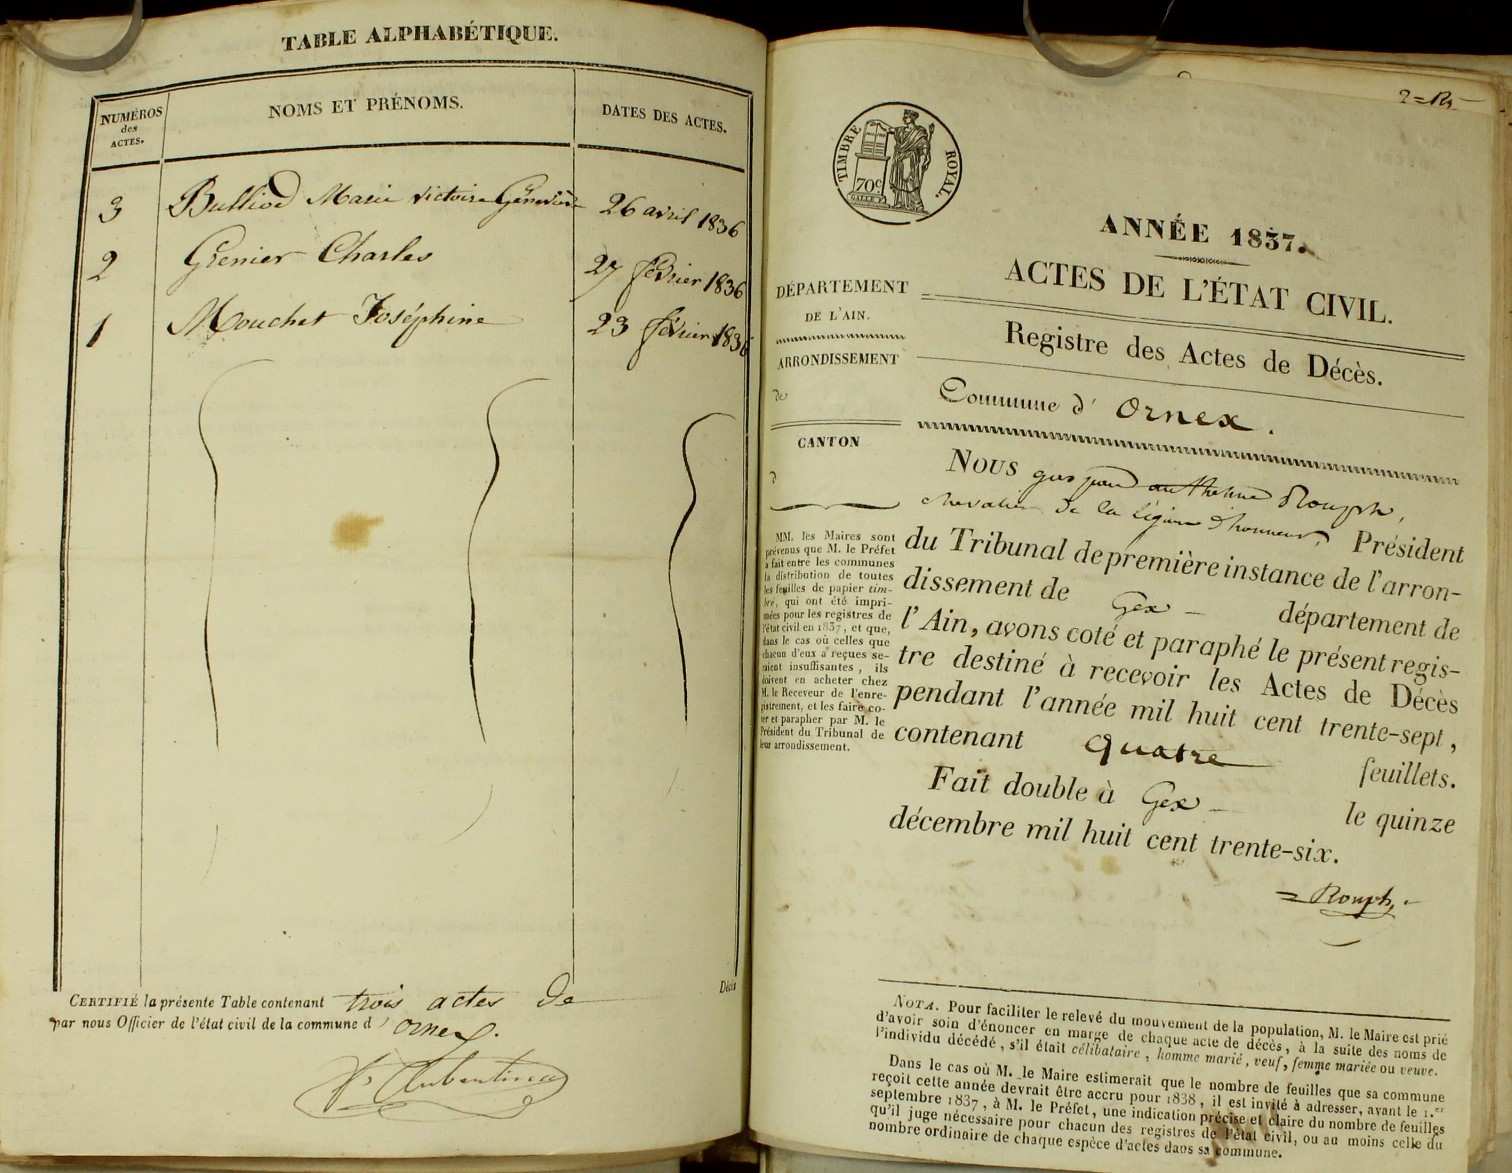 TABLE ALPHABÉTIQUE.
NUMÉROS des ACTES.
NOMS ET PRÉNOMS.
DATES DES ACTES.
3 Bulliod Marie victoire Géneviève 26 avril 1836
2 Grenier Charles 27 février 1836
1 Mouchet Joséphine 23 février 1836
CERTIFIÉ la présente Table contenant trois actes de Décès
par nous Officier de l'état civil de la commune d' Ornex.
2=
TIMBRE ROYAL.
70c
ANNÉE 1837.
ACTES DE L'ÉTAT CIVIL.
Registre des Actes de Décès.
Commune d' Ornex.
DÉPARTEMENT
DE L'AIN.
ARRONDISSEMENT
de
CANTON
d
MM. les Maires sont
prévenus que M. le Préfet
a fait entre les communes
la distribution de toutes
les feuilles de papier tim-
bré, qui ont été impri-
mées pour les registres de
l'état civil en 1837, et que,
dans le cas où celles que
chacun d'eux a reçues se-
raient insuffisantes, ils
doivent en acheter chez
M. le Receveur de l'enre-
gistrement, et les faire co-
ter et parapher par M. le
Président du Tribunal de
leur arrondissement.
NOUS gaspard anthelme Rouph,
chevalier de la légion d'honneur, Président
du Tribunal de première instance de l'arron-
dissement de Gex département de
l'Ain, avons coté et paraphé le présent regis-
tre destiné à recevoir les Actes de Décès
pendant l'année mil huit cent trente-sept,
contenant quatre feuillets.
Fait double à Gex le quinze
décembre mil huit cent trente-six.
Rouph
NOTA. Pour faciliter le relevé du mouvement de la population, M. le Maire est prié
d'avoir soin d'énoncer en marge de chaque acte de décès, à la suite des noms de
l'individu décédé, s'il était célibataire, homme marié, veuf, femme mariée ou veuve.
Dans le cas où M. le Maire estimerait que le nombre de feuilles que sa commune
reçoit cette année devrait être accru pour 1838, il est invité à adresser, avant le 1.er
septembre 1837, à M. le Préfet, une indication précise et claire du nombre de feuilles
qu'il juge nécessaire pour chacun des registres de l'état civil, ou au moins celle du
nombre ordinaire de chaque espèce d'actes dans sa commune.